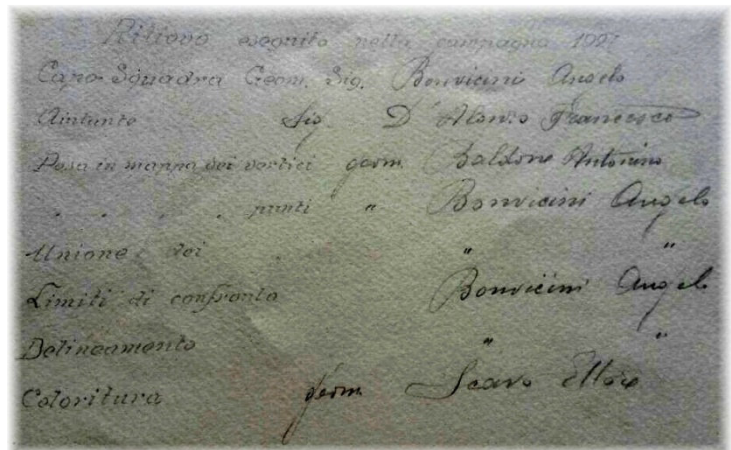 Rilievo eseguito nella campagna 1927
Capo Squadra Geom. Sig. Bonvicini Angelo
Aiutante Sig. D'Alonzo Francesco
Posa in mappa dei vertici geom. Antonino
" " " " punti " Bonvicini Angelo
Unione dei " "
Limiti di confronto Bonvicini Angelo
Delineamento " "
Coloritura geom. Scavo Ettore